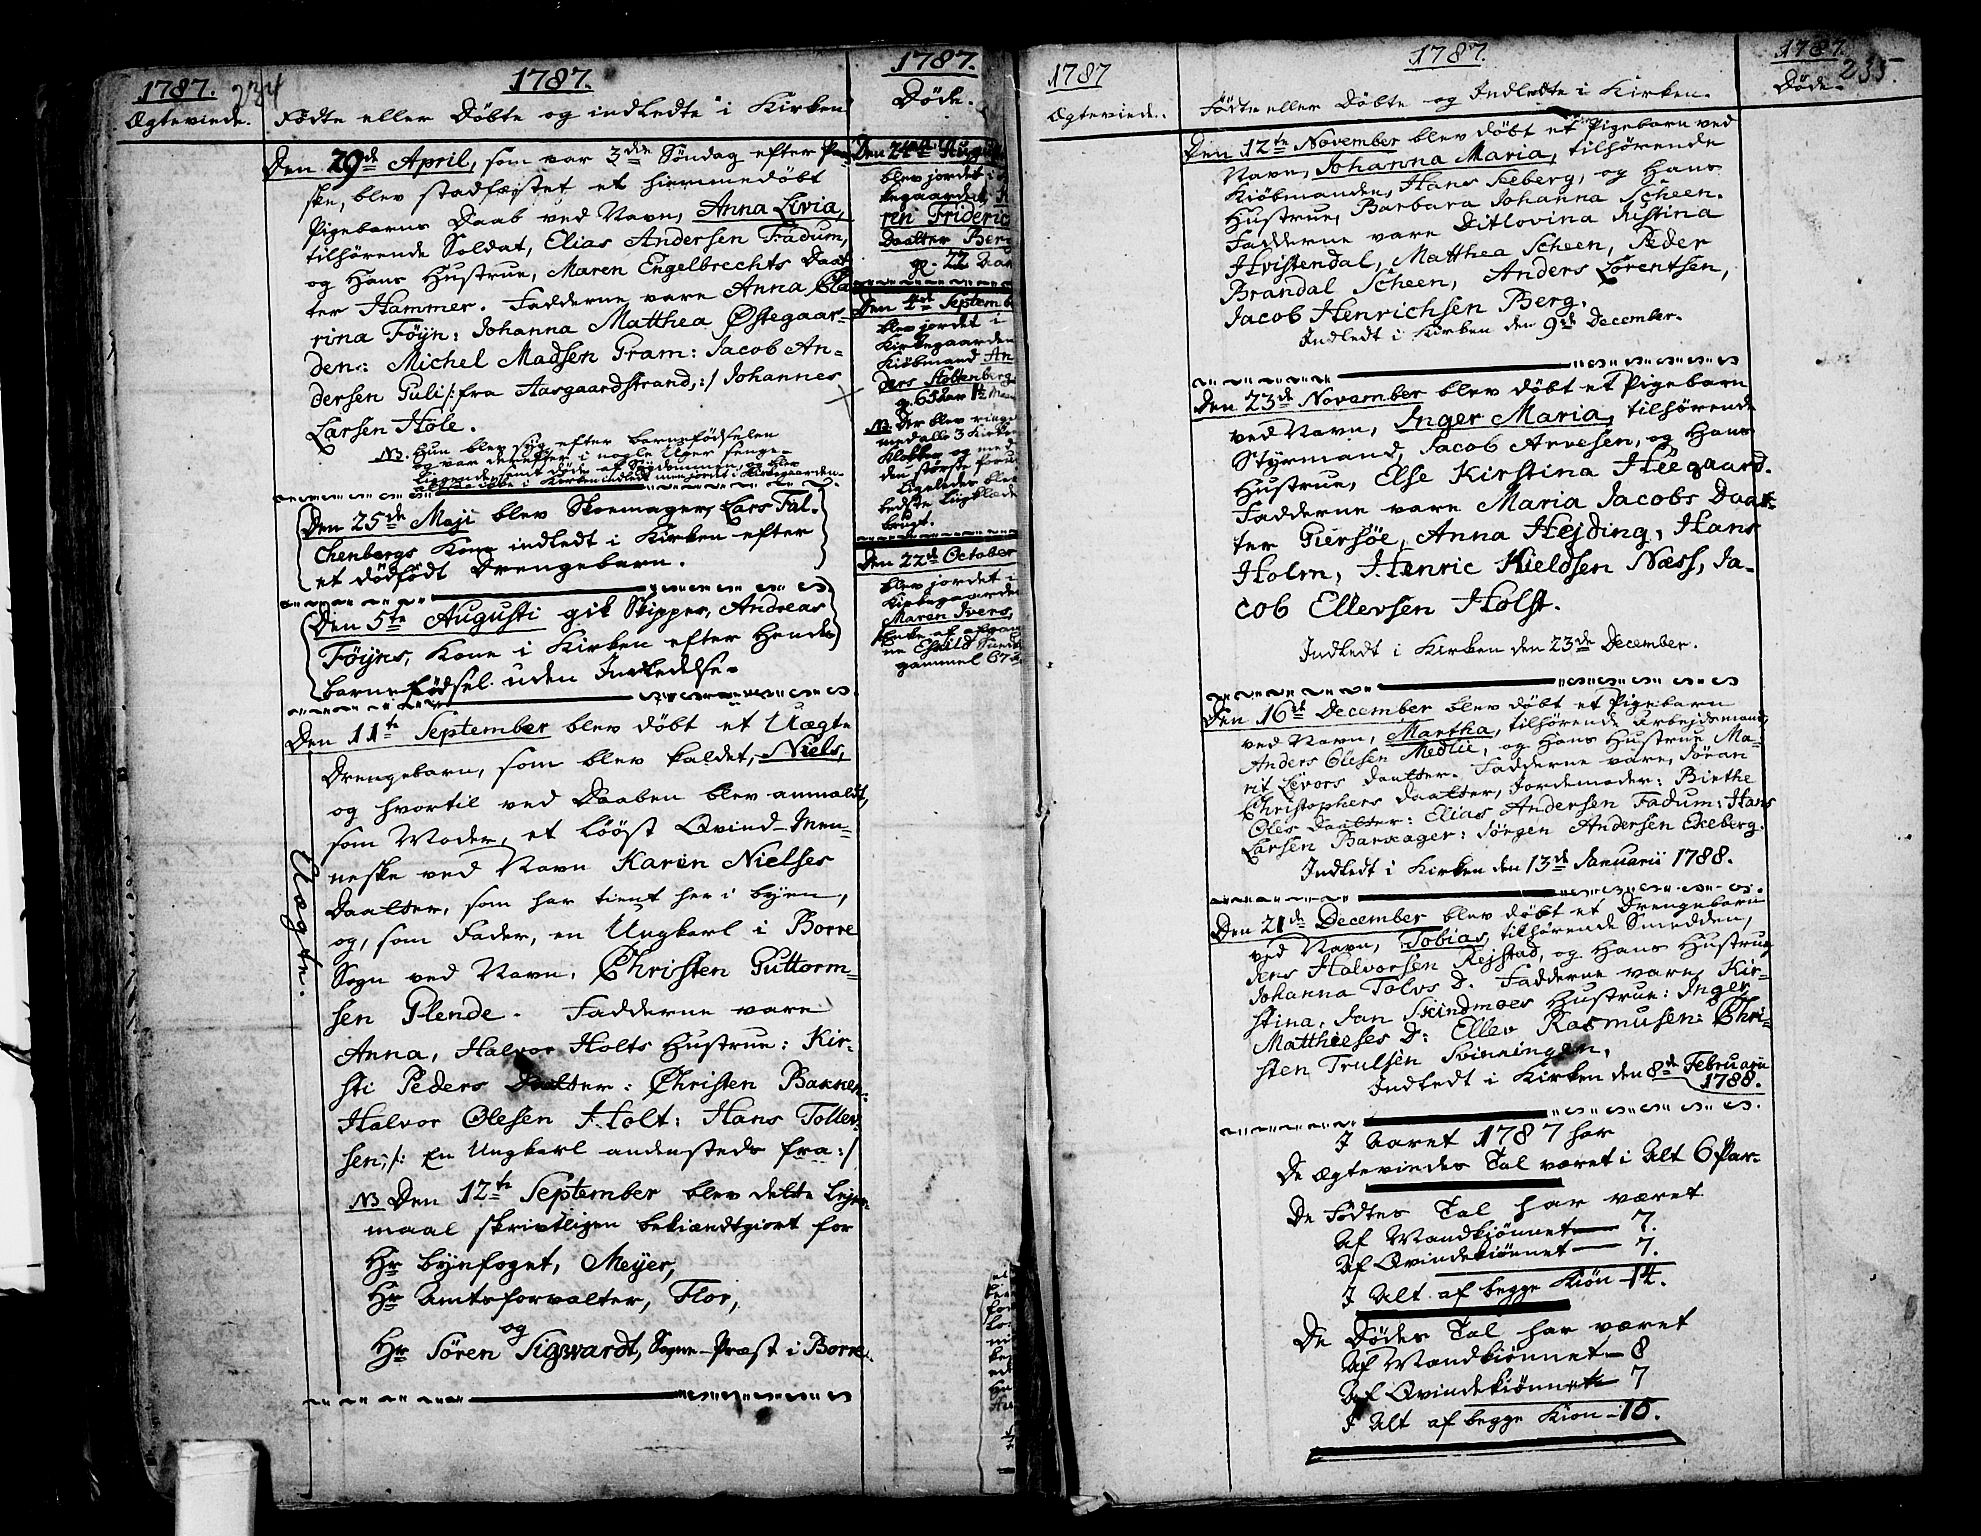 1787. 234
Ægteviede.
1787.
Fødte eller Døbte og indledte i Kirken
Den 29de April, som var 3die Søndag efter Paa-
ske, blev stadfæstet et hiemmedøbt
Pigebarns Daab ved Navn, Anna Livia,
tilhørende Soldat, Elias Andersen Fadum,
og Hans Hustrue, Maren Engelbrechts Daat-
ter Hammer. Fadderne vare Anna Cla
rina Föyn: Johanna Matthea Østegaar-
den: Michel Madsen Gram: Jacob An-
dersen Guli /: fra Aasgaardstrand, :/ Johannes
Larsen Hole.
NB. Hun blev syg efter barnefødselen
og var derefter i nogle Uger senge-
liggendes, samt døde af Sygdommen, og blev
altsaa ikke i Kirken indledt men jordet i Kirkegaarden.
Den 25de Maji blev Skoemager, Lars Fal-
chenbergs Kone indledt i Kirken efter
et dødfødt Drengebarn.
Den 5te Augusti gik Skipper, Andreas
Föyns, Kone i Kirken efter Hendes
barnefødsel uden Indledelse.
Den 11te September blev døbt et Uægte
Drengebarn, som blev kaldet, Niels,
og hvortil ved Daaben blev anmældt,
som Moder, et lööst Qvind-Men-
neske ved Navn Karen Nielses
Daatter, som har tient her i byen,
og, som Fader, en Ungkarl i Borre
Sogn ved Navn, Christen Guttorm-
sen Glende. Fadderne vare
Anna, Halvor Holts Hustrue: Kir-
sti Peders Daatter: Christen Bakken:
Halvor Olesen Holt: Hans Tollev-
sen, /: En Ungkarl andensteds fra :/
NB Den 12te September blev dette Lejer-
maal skrivtligen bekiændtgiort for
Hr byefoget, Meÿer,
Hr Amtsforvalter, Flor,
og
Hr Sören Sigwardt, Sogne-Præst i Borre.
Uægte.
1787.
Døde.
Den 24de
blev jordet i
kegaarden,
rin Frideric
Daatter Ber
g. 22
Den 4de Septemb
blev jordet i
Kirkegaarden
Kiøbmand An
ders Stoltenberg
g. 65 Aar
NB. Der blev ringe
med alle 3 Kirke
Klokker og med
den største
Ligeledes blev
bedste Liigklæde
brugt.
Den 22de October
blev jordet i
Kirkegaarden
Maren Ivers,
Enke af
ne Eskild
gammel 67
1787
Ægteviede.
1787.
Fødte eller Døbte og Indledte i Kirken.
Den 12te November blev døbt et Pigebarn ved
Navn, Johanna Maria, tilhørende
Kiøbmanden, Hans Seeberg, og Hans
Hustrue, Barbara Johanna Scheen.
Fadderne vare Ditlovina Ristina
Hvistendal, Matthea Scheen, Peder
Brandal Scheen, Anders Lorentsen,
Jacob Henrichsen Berg.
Indledt i Kirken den 9de December.
Den 23de November blev døbt et Pigebarn
ved Navn, Inger Maria, tilhørende
Styrmand, Jacob Arvesen, og Hans
Hustrue, Else Kirstina Heegaard.
Fadderne vare Maria Jacobs Daat-
ter Giersøe, Anna Hejding, Hans
Holm, Henric Kieldsen Næss, Ja-
cob Ellevsen Holst.
Indledt i Kirken den 23de December.
Den 16de December blev døbt et Pigebarn
ved Navn, Martha, tilhørende Arbejdsmand,
Anders Olesen Medlie, og Hans Hustrue Ma-
rit Levors Daatter. Fadderne vare, Jøran
Christophers Daatter, Jordemoder: Birthe
Oles Daatter: Elias Andersen Fadum: Hans
Larsen Barkager: Jörgen Andersen Ekeberg.
Indledt i Kirken den 13de Januarii 1788.
Den 21de December blev døbt et Drengebarn
ved Navn, Tobias, tilhørende Smedden,
Jens Halvorsen Rejstad, og Hans Hustrue
Johanna Tolvs D. Fadderne vare, Kir-
stina, Jan Skindmoes Hustrue: Inger
Matthieses D: Ellev Rasmusen: Chri-
sten Trulsen Svinningen.
Indledt i Kirken den 8de Februarii
1788.
I Aaret 1787 har
De Ægteviedes Tal været i Alt 6 Par-
De Fødtes Tal har været
Af Mandkiönnet — 7.
Af Qvindekiönnet — 7.
I Alt af begge Kiön - 14.
De Dödes Tal har været
Af Mandkiönnet — 8
Af Qvindekiönnet — 7
I Alt af begge Kiön - 15.
1787. 235.
Døde.